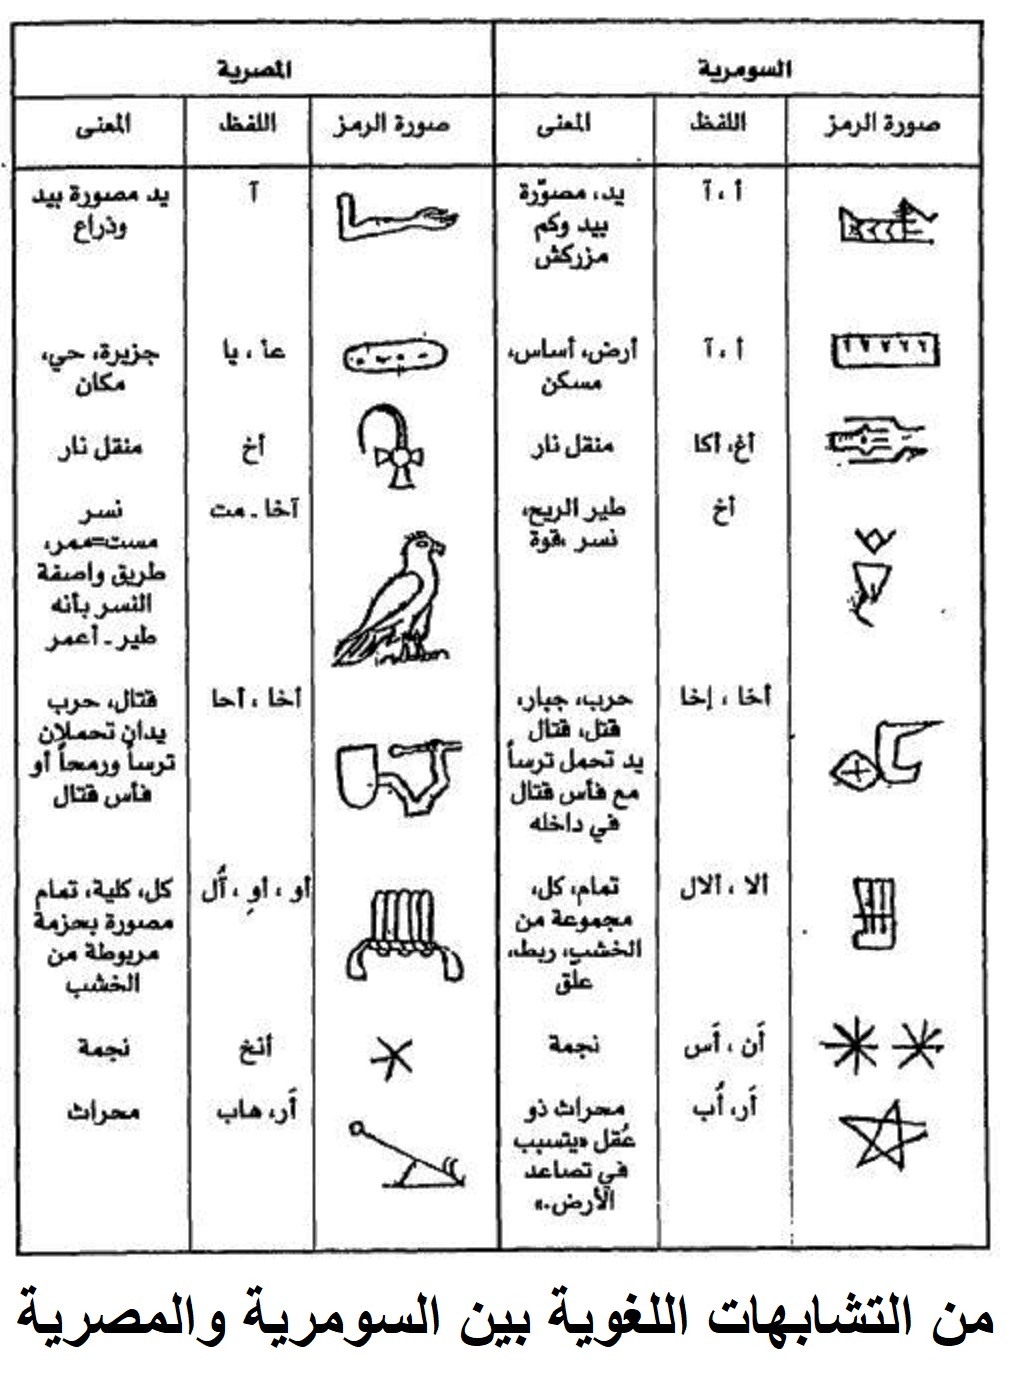 السومرية المصرية
صورة الرمز اللفظ المعنى صورة الرمز اللفظ المعنى
أ ، آ يد، مصوّرة آ يد مصورة بيد
بيد وكم وذراع
مزركش
أ ، آ أرض، أساس، عأ ، يا جزيرة، حي،
مسكن مكان
أغ، أكا منقل نار أخ منقل نار
أخ طير الريح، آخا ـ مت نسر
نسر ،قوة مست=ممر،
طريق واصفة
النسر بأنه
طير ـ أعمر
أخا ، إخا حرب، جبار، أخا ، أحا قتال، حرب
قتل، قتال يدان تحملان
يد تحمل ترساً ترساً ورمحاً أو
مع فأس قتال فأس قتال
في داخله
ألا ، ألال تمام، كل، أو ، أوِ ، أُل كل، كلية، تمام
مجموعة من مصورة بحزمة
الخشب، ربط، مربوطة من
علق الخشب
أَن ، أَس نجمة أنخ نجمة
أَر، أُب محراث ذو أَر، هاب محراث
عُقل «يتسبب
في تصاعد
الأرض.»
من التشابهات اللغوية بين السومرية والمصرية